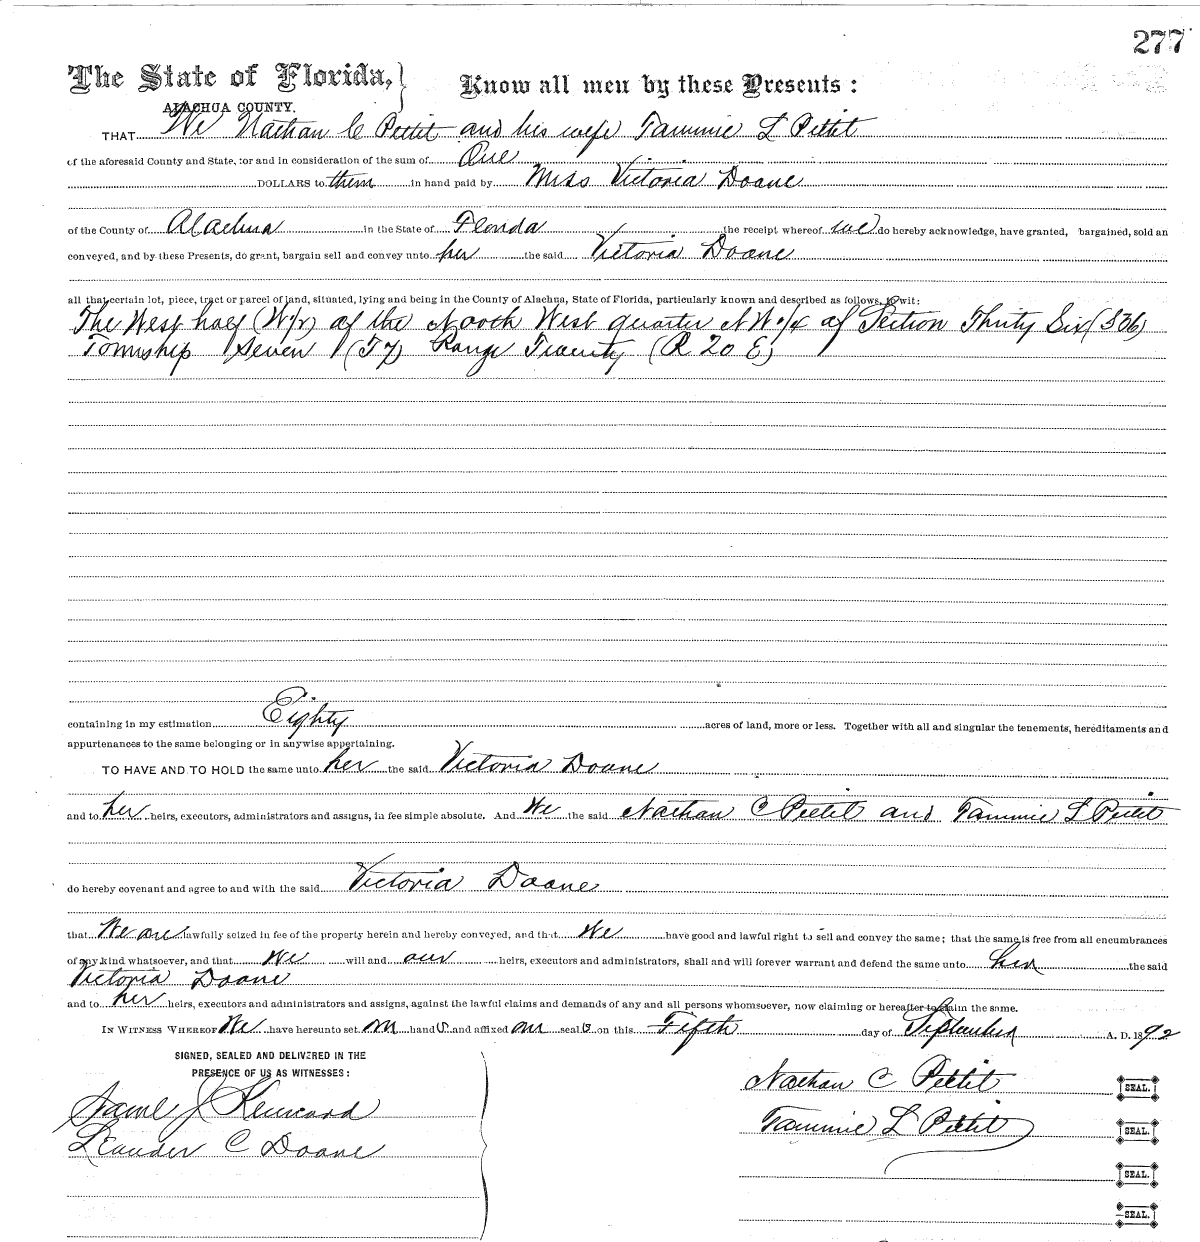 277
The State of Florida,
ALACHUA COUNTY.
Know all men by these Presents:
THAT We Nathan C Pettit and his wife Tammie L Pettit
of the aforesaid County and State, for and in consideration of the sum of One
DOLLARS to them in hand paid by Miss Victoria Doane
of the County of Alachua in the State of Florida the receipt whereof we do hereby acknowledge, have granted, bargained, sold an
conveyed, and by these Presents, do grant, bargain sell and convey unto her the said Victoria Doane
all that certain lot, piece, tract or parcel of land, situated, lying and being in the County of Alachua, State of Florida, particularly known and described as follows, to wit:
The West half (W½) of the North West quarter NW¼ of Section Thirty Six (S36)
Township Seven (T7) Range Twenty (R 20 E)
containing in my estimation Eighty acres of land, more or less. Together with all and singular the tenements, hereditaments and
appurtenances to the same belonging or in anywise appertaining.
TO HAVE AND TO HOLD the same unto her the said Victoria Doane
and to her heirs, executors, administrators and assigns, in fee simple absolute. And We the said Nathan C Pettit and Tammie L Pettit
do hereby covenant and agree to and with the said Victoria Doane
that We are lawfully seized in fee of the property herein and hereby conveyed, and that We have good and lawful right to sell and convey the same; that the same is free from all encumbrances
of any kind whatsoever, and that We will and our heirs, executors and administrators, shall and will forever warrant and defend the same unto her the said
Victoria Doane
and to her heirs, executors and administrators and assigns, against the lawful claims and demands of any and all persons whomsoever, now claiming or hereafter to claim the same.
IN WITNESS WHEREOF We have hereunto set our hands and affixed our seals on this Fifth day of September A. D. 1892
SIGNED, SEALED AND DELIVERED IN THE
PRESENCE OF US AS WITNESSES:
Nathan C Pettit SEAL.
Saml J Kennard
Tammie L Pettit SEAL.
Leander C Doane
SEAL.
SEAL.